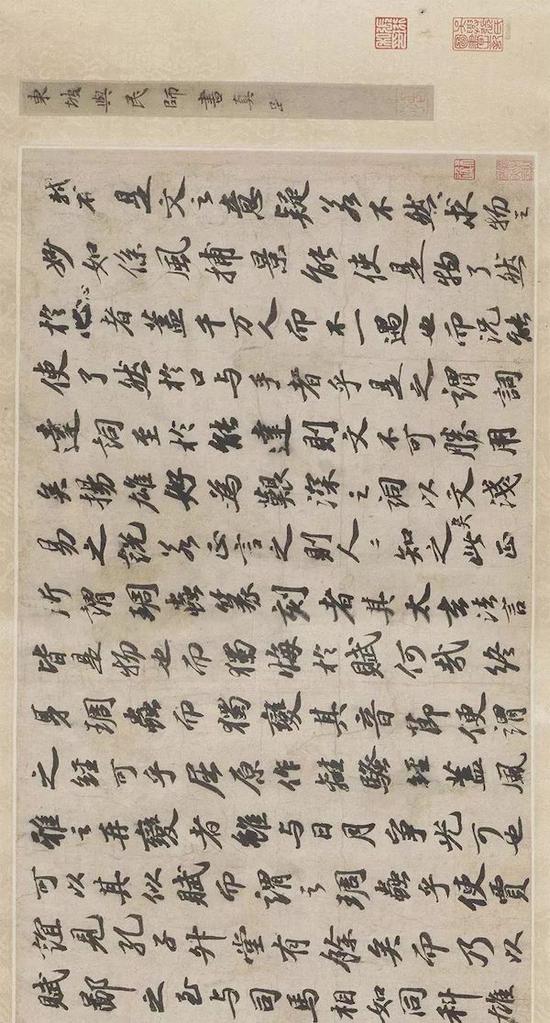 東坡與民師書真跡
是文之意疑若不然求物之
妙如係風捕景能使是物了然
於心者蓋千万人而不一遇也而況能
使了然於口与手者乎是之謂詞
達詞至於能達則文不可勝用
矣揚雄好為艱深之詞以文淺
易之說若正言之則人〻知之矣此正
所謂琱蟲篆刻者其太玄法言
皆是物也而獨悔於賦何哉終
身琱蟲而獨變其音節便謂
之經可乎屈原作離騷經蓋風
雅之再變者雖与日月爭光可也
可以其似賦而謂之琱蟲乎使賈
誼見孔子升堂有餘矣而乃以
賦鄙之至与司馬相如同科雄